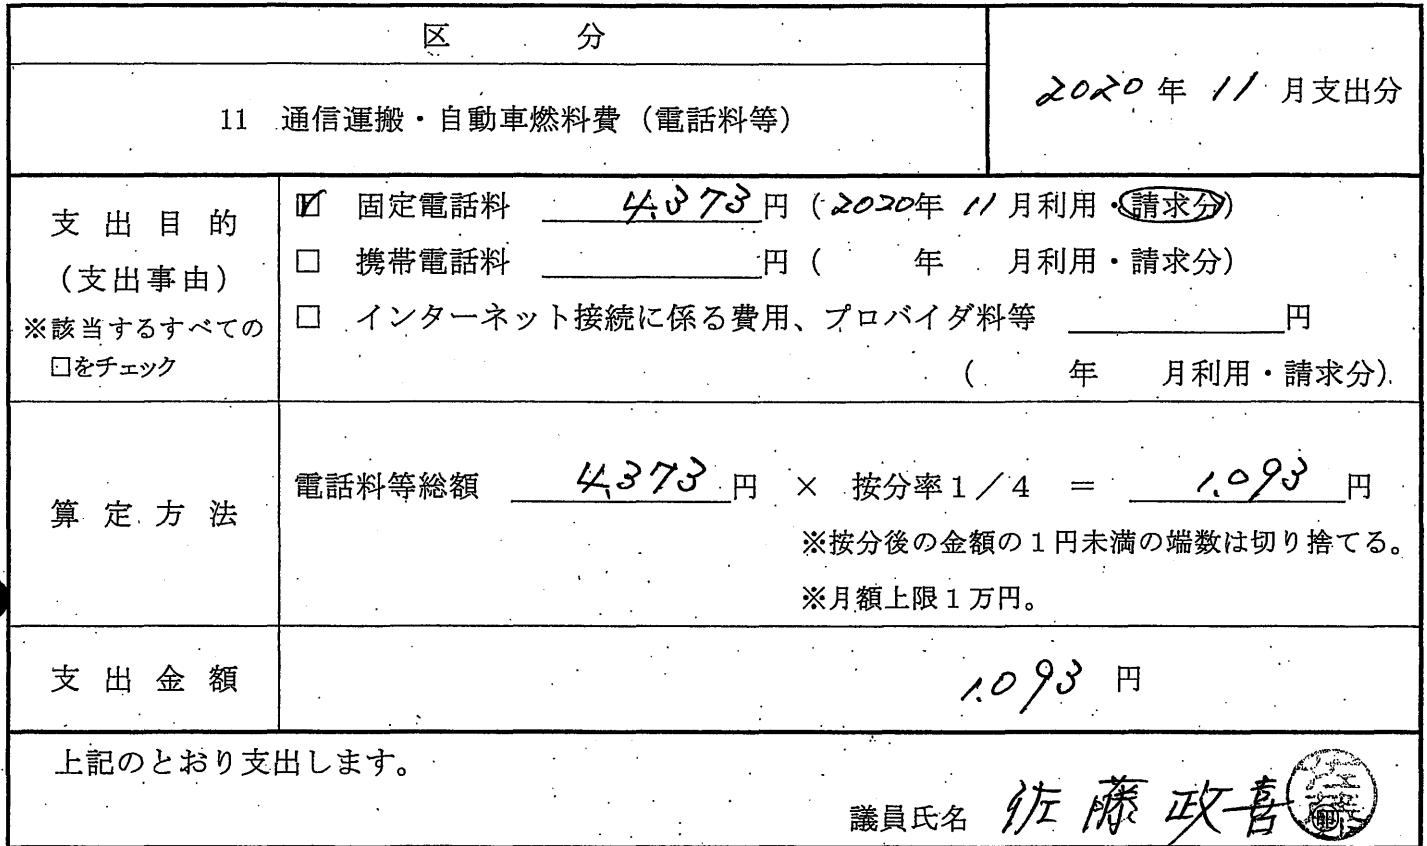 区 分
11 通信運搬・自動車燃料費（電話料等）
2020年 11月支出分
支出目的
（支出事由）
※該当するすべての
□をチェック
☑ 固定電話料 4,373円（2020年 11月利用・請求分）
□ 携帯電話料 円（ 年 月利用・請求分）
□ インターネット接続に係る費用、プロバイダ料等 円
（ 年 月利用・請求分）
算定方法
電話料等総額 4,373円 × 按分率1／4 ＝ 1,093円
※按分後の金額の1円未満の端数は切り捨てる。
※月額上限1万円。
支出金額
1,093 円
上記のとおり支出します。
議員氏名 佐藤政喜